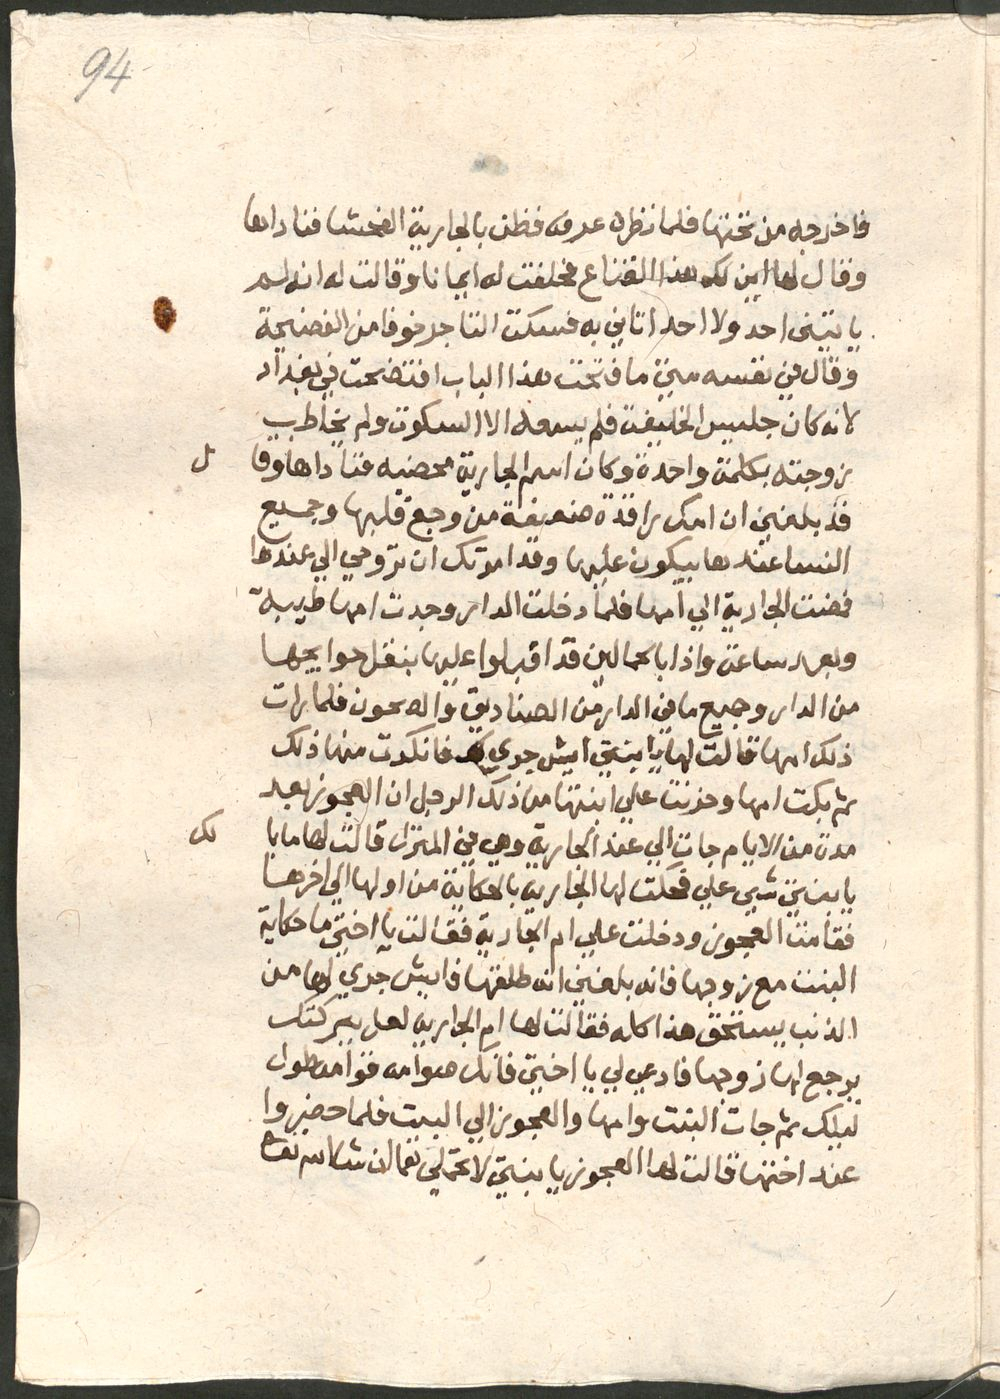 94
فاخرجه من تحتها فلما نظره عرفه فظن بالجارية الفحشا فناداها
وقال لها اين لك هذا القناع فحلفت له ايمانا وقالت له انه لم
ياتيني احد ولا احد اتاني به فسكت التاجر خوفا من الفضيحة
وقال في نفسه متى ما فتحت هذا الباب افتضحت في بغداد
لانه كان جليس الخليفة فلم يسعه الا السكوت ولم يخاطب
زوجته بكلمة واحدة وكان اسم الجارية محضيه فناداها وقا ل
قد بلغني ان امك راقدة ضعيفة من وجع قلبها وجميع
النسا عندها يبكون عليها وقد امرتك ان تروحي الي عندها
فمضت الجارية الي امها فلما دخلت الدار وجدت امها طيبة
وبعد ساعة واذا بالحمالين قد اقبلوا عليها بنقل حوايجها
من الدار وجميع ما في الدار من الصناديق والصحون فلما رات
ذلك امها قالت لها يا ابنتي ايش جري فانكرت منها ذلك
ثم بكت امها وحزنت علي ابنتها من ذلك الرجل ان العجوز بعد
مدة من الايام جات الي عند الجارية وهي في المنزل قالت لها ما با لك
يا بنتي شي علي فحكت لها الجارية بالحكاية من اولها الي اخرها
فقامت العجوز ودخلت علي ام الجارية فقالت يا اختي ما حكاية
البنت مع زوجها فانه بلغني انه طلقها فايش جري لها من
الذنب يستحق هذا كله فقالت لها ام الجارية لعل ببركتك
يرجع لها زوجها فادعي لي يا اختي فانك صوامه قوامه طول
ليلك ثم جات البنت وامها والعجوز الي البيت فلما حضروا
عند اختها قالت لها العجوز يا بنتي لا تحملي هم ان شا الله تعا